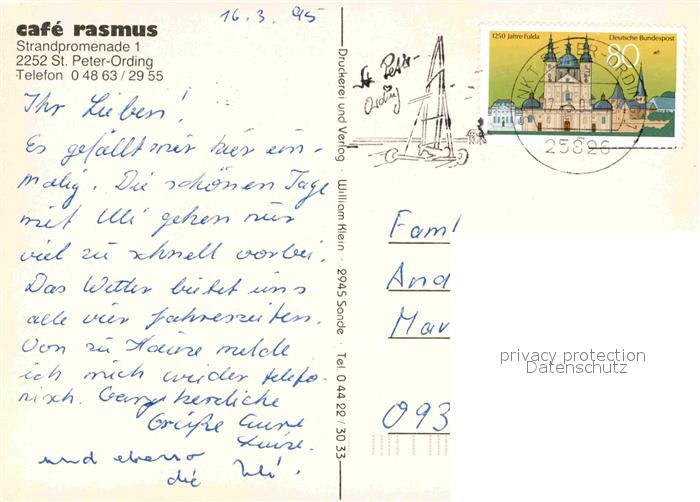 café rasmus
Strandpromenade 1
2252 St. Peter-Ording
Telefon 0 48 63 / 29 55
16.3.95
Ihr Lieben!
Es gefällt mir hier ein-
malig. Die schönen Tage
mit Uli gehen nur
viel zu schnell vorbei.
Das Wetter bietet uns
alle vier Jahreszeiten.
Von zu Hause melde
ich mich wieder telefo-
nisch. Ganz herzliche
Grüße Eure
Luise.
und ebenso
die Uli.
Druckerei und Verlag · William Klein · 2945 Sande · Tel. 0 44 22 / 30 33
St. Peter-
Ording
1250 Jahre Fulda
Deutsche Bundespost
80
25826
Fam
And
Mar
093
privacy protection
Datenschutz